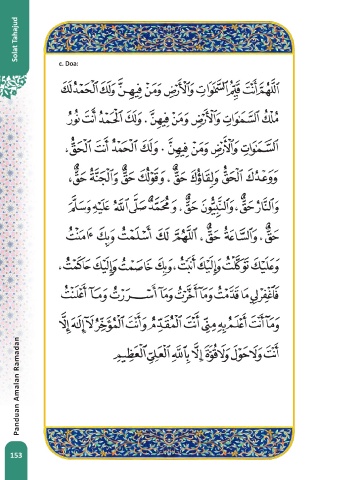 Solat Tahajud
c. Doa:
اَللَّهُمَّ أَنْتَ قَيِّمُ السَّمَاوَاتِ وَالْأَرْضِ وَمَنْ فِيهِنَّ وَلَكَ الْحَمْدُ لَكَ
مُلْكُ السَّمَاوَاتِ وَالْأَرْضِ وَمَنْ فِيهِنَّ . وَلَكَ الْحَمْدُ أَنْتَ نُورُ
السَّمَاوَاتِ وَالْأَرْضِ وَمَنْ فِيهِنَّ . وَلَكَ الْحَمْدُ أَنْتَ الْحَقُّ،
وَوَعْدُكَ الْحَقُّ وَلِقَاؤُكَ حَقٌّ . وَقَوْلُكَ حَقٌّ وَالْجَنَّةُ حَقٌّ،
وَالنَّارُ حَقٌّ وَالنَّبِيُّونَ . وَمُحَمَّدٌ صَلَّى اللَّهُ عَلَيْهِ وَسَلَّمَ
حَقٌّ . وَالسَّاعَةُ حَقٌّ ، اَللَّهُمَّ لَكَ أَسْلَمْتُ وَبِكَ ءَامَنْتُ
وَعَلَيْكَ تَوَكَّلْتُ وَإِلَيْكَ أَنَبْتُ، وَبِكَ خَاصَمْتُ وَإِلَيْكَ حَاكَمْتُ .
فَاغْفِرْ لِي مَا قَدَّمْتُ وَمَا أَخَّرْتُ وَمَا أَسْرَرْتُ وَمَا أَعْلَنْتُ
وَمَا أَنْتَ أَعْلَمُ بِهِ مِنِّي أَنْتَ الْمُقَدِّمُ وَأَنْتَ الْمُؤَخِّرُ لَا إِلَهَ إِلَّا
أَنْتَ وَلَا حَوْلَ وَلَا قُوَّةَ إِلَّا بِاللَّهِ الْعَلِيِّ الْعَظِيمِ
Panduan Amalan Ramadan
153